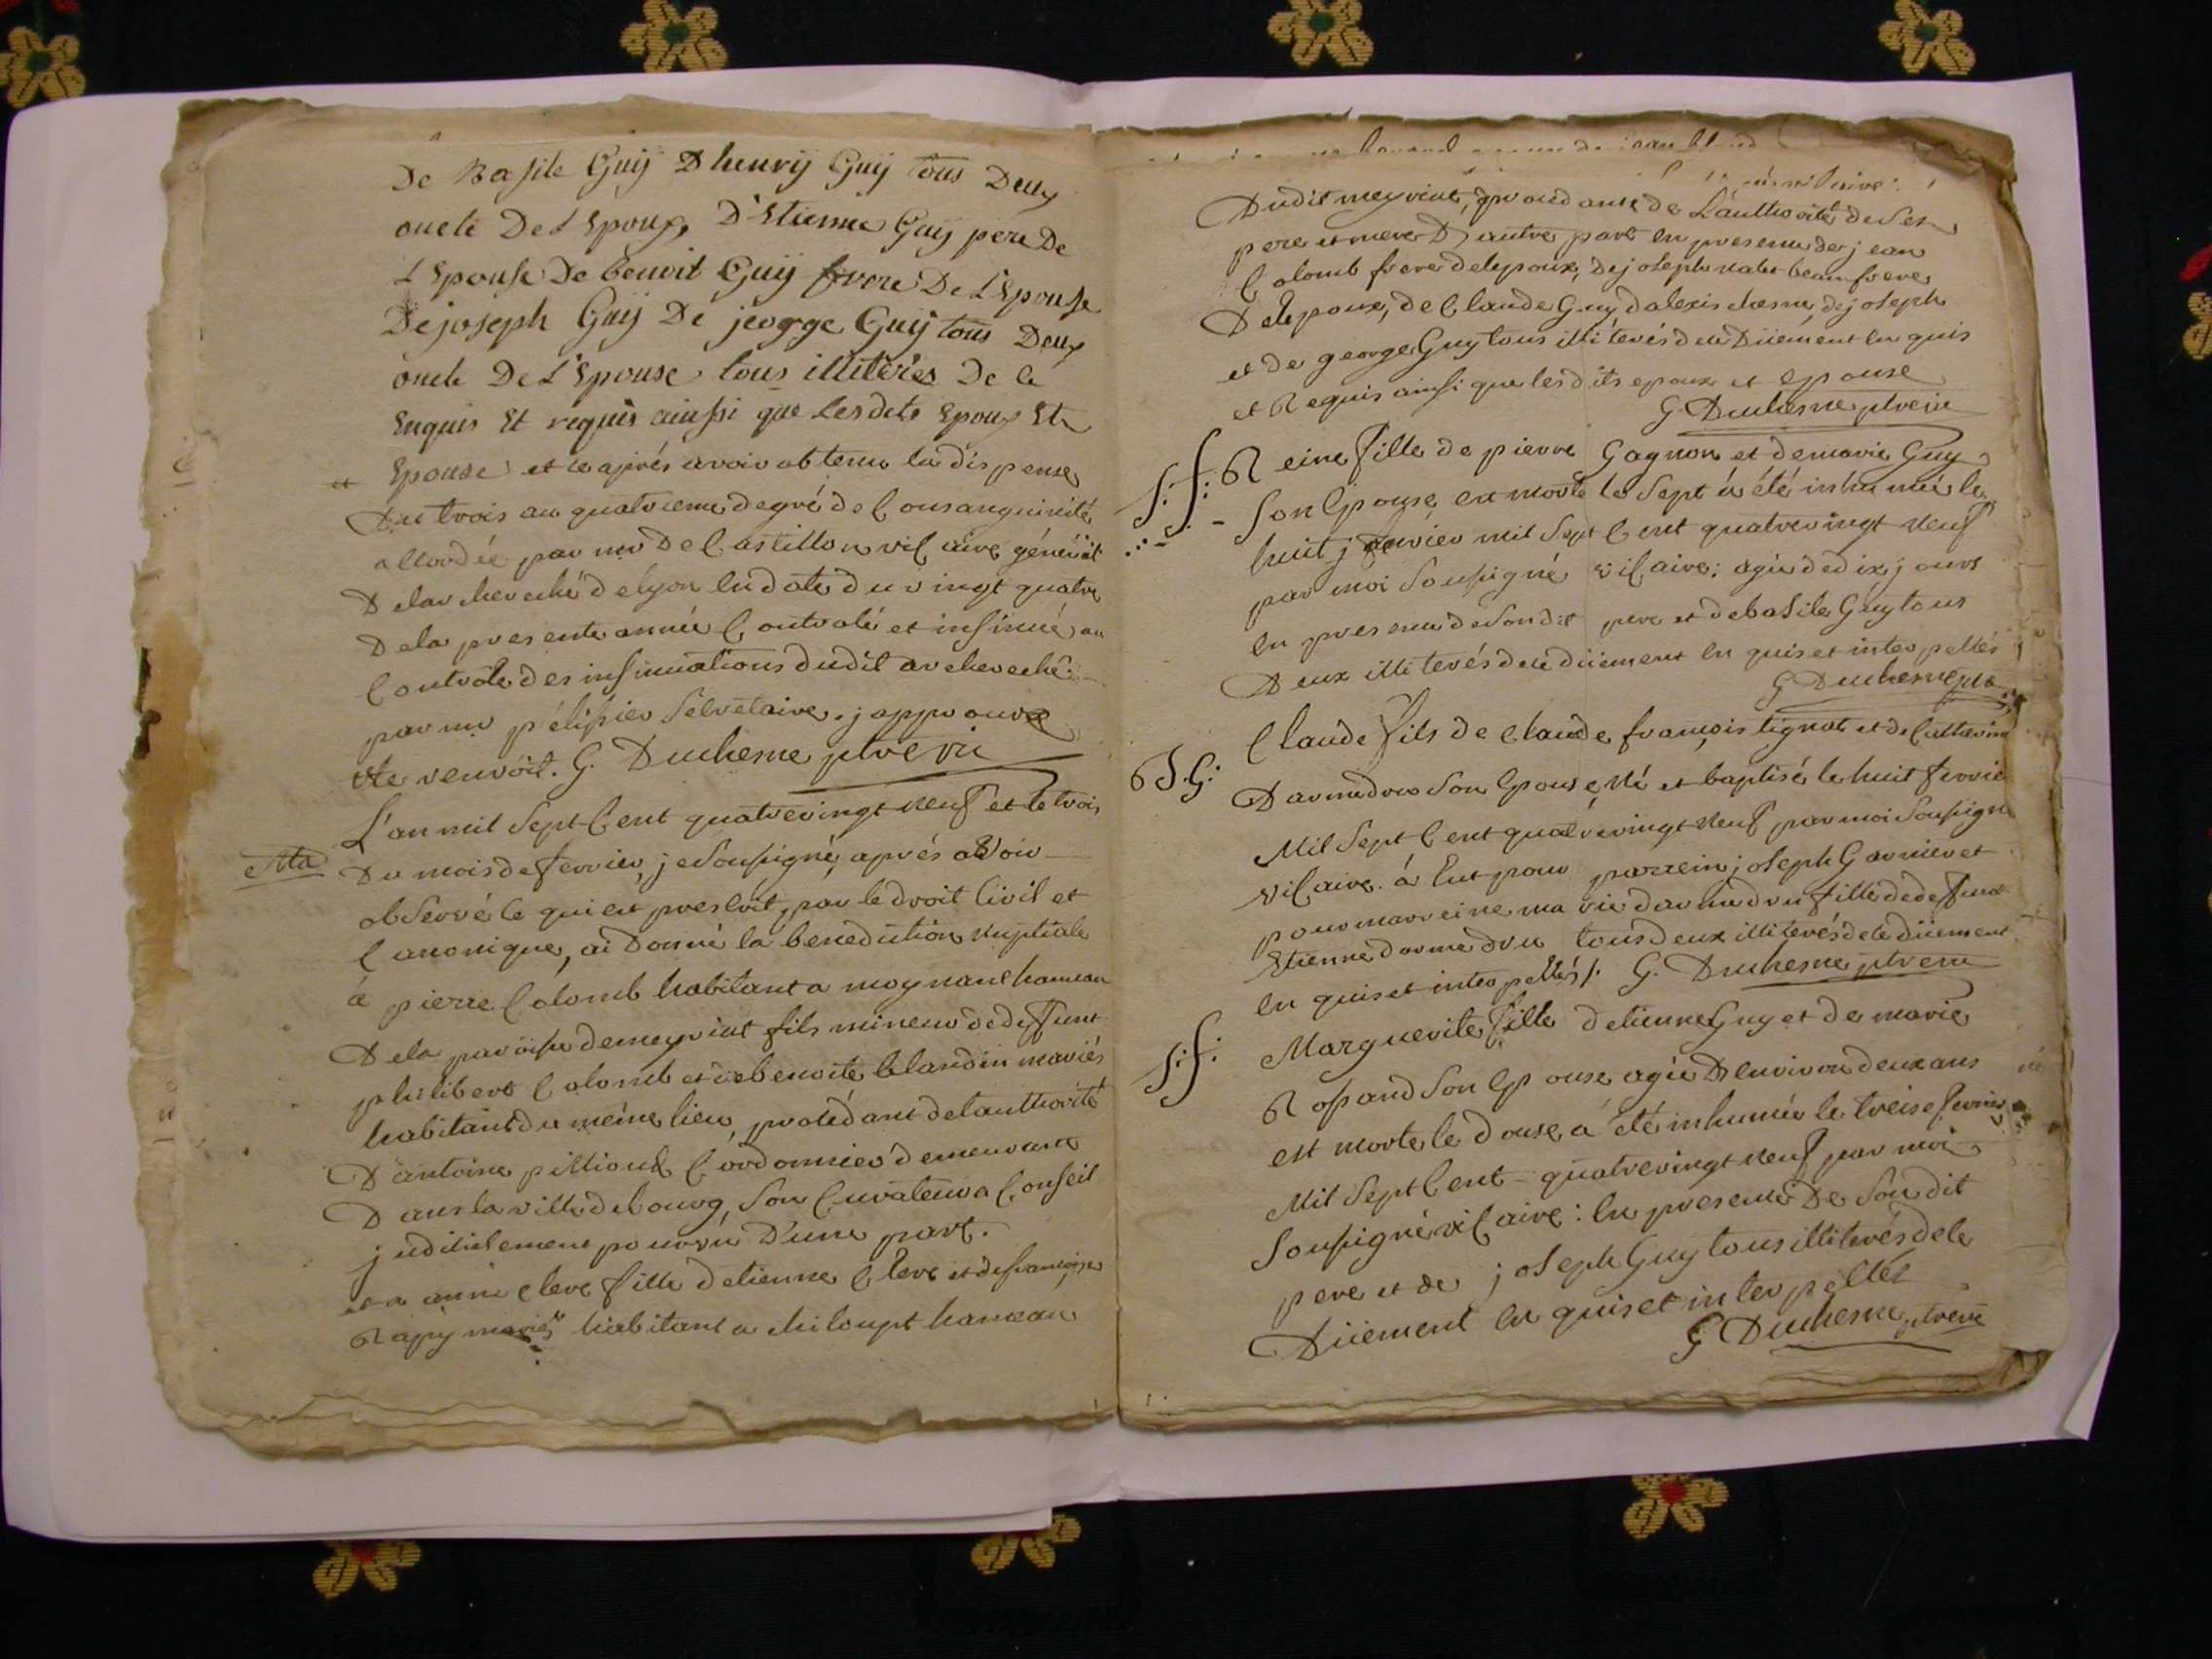 De Basile Guÿ D henrÿ Guÿ tous Deux
oncle De L'Epoux, D'Etienne Guÿ pere De
L'Epouse De benoit Guÿ frere De L'Epouse
De joseph Guÿ De jeorge Guÿ tous Deux
oncle De L'Epouse tous illiterés De ce
Enquis Et requis ainssi que Lesdets Epoux Et
Epouse et ce aprés avoir obtenu la dispense
Du trois au quatrieme degré de Consanguinité
accordée par mr De Castillon vicaire général
De l'archeveché de lyon en date du vingt quatre
De la presente année Controlé et insinué au
Controle des insinuations dudit archeveché
par mr pélissier Secretaire. j approuve
le renvöit. G. Duchesne ptre vic
L'an mil Sept Cent quatrevingt neuf et le trois
Ma Du mois de fevrier, je Soussigné, aprés avoir
observé ce qui est prescrit, par le droit Civil et
Canonique, ai Donné la benediction nuptiale
á pierre Colomb habitant a moynant hameau
De la paroisse de meyriat fils mineur de deffunt
philibert Colomb et de benoite blandin mariés
habitant du même lieu, procédant de l'authorité
D'antoine pilliout Cordonnier demeurant
Dans la ville de bourg, Son Curateur a Conseil
judicielement pourvu D'une part.
et a anne clere fille d'etienne Clere et de françoise
Rapy mariés habitant a chiloupt hameau
Dudit meyriat, procedante de L'authorité de Ses
pere et mere D'autre part en presence de jean
Colomb frere de lepoux, de joseph nalet beau frere
De lepoux, de Claude Guy, d'alexis chesne, de joseph
et de george Guy tous illiterés de ce Düement enquis
et Requis ainsi que lesdits epoux et epouse
G Duchesne ptre vic
S.f. Reine fille de pierre Gagnon et de marie Guy
Son Epouse, est morte le Sept á été inhumée le
huit janvier mil Sept Cent quatrevingt neuf
par moi Soussigné vicaire: agée de dix jours
en presence de Son dit pere et de basile Guy tous
Deux illiterés de ce düement enquis et interpellés
G Duchesne ptre
B.G. Claude fils de claude françois tignat et de Catherine
Darmedru Son Epouse, né et baptisé le huit fevrie
Mil Sept Cent quatrevingt neuf par moi Soussigne
vicaire. á Eut pour parrein joseph Garnier et
pour marreine marie darmedru fille de deffunt
Etienne darmedru tous deux illiterés de ce düement
enquis et interpellés. G. Duchesne ptre vic
S.f. Marguerite fille d'etienne Guy et de marie
Rossand Son Epouse, agée D'environ deux ans
est morte le douse, a été inhumée le treise fevrier
Mil Sept Cent quatrevingt neuf par moi
Soussigné vicaire: en presence De Son dit
pere et de joseph Guy tous illiterés de ce
Düement enquis et interpellés
G Duchesne ptre vic